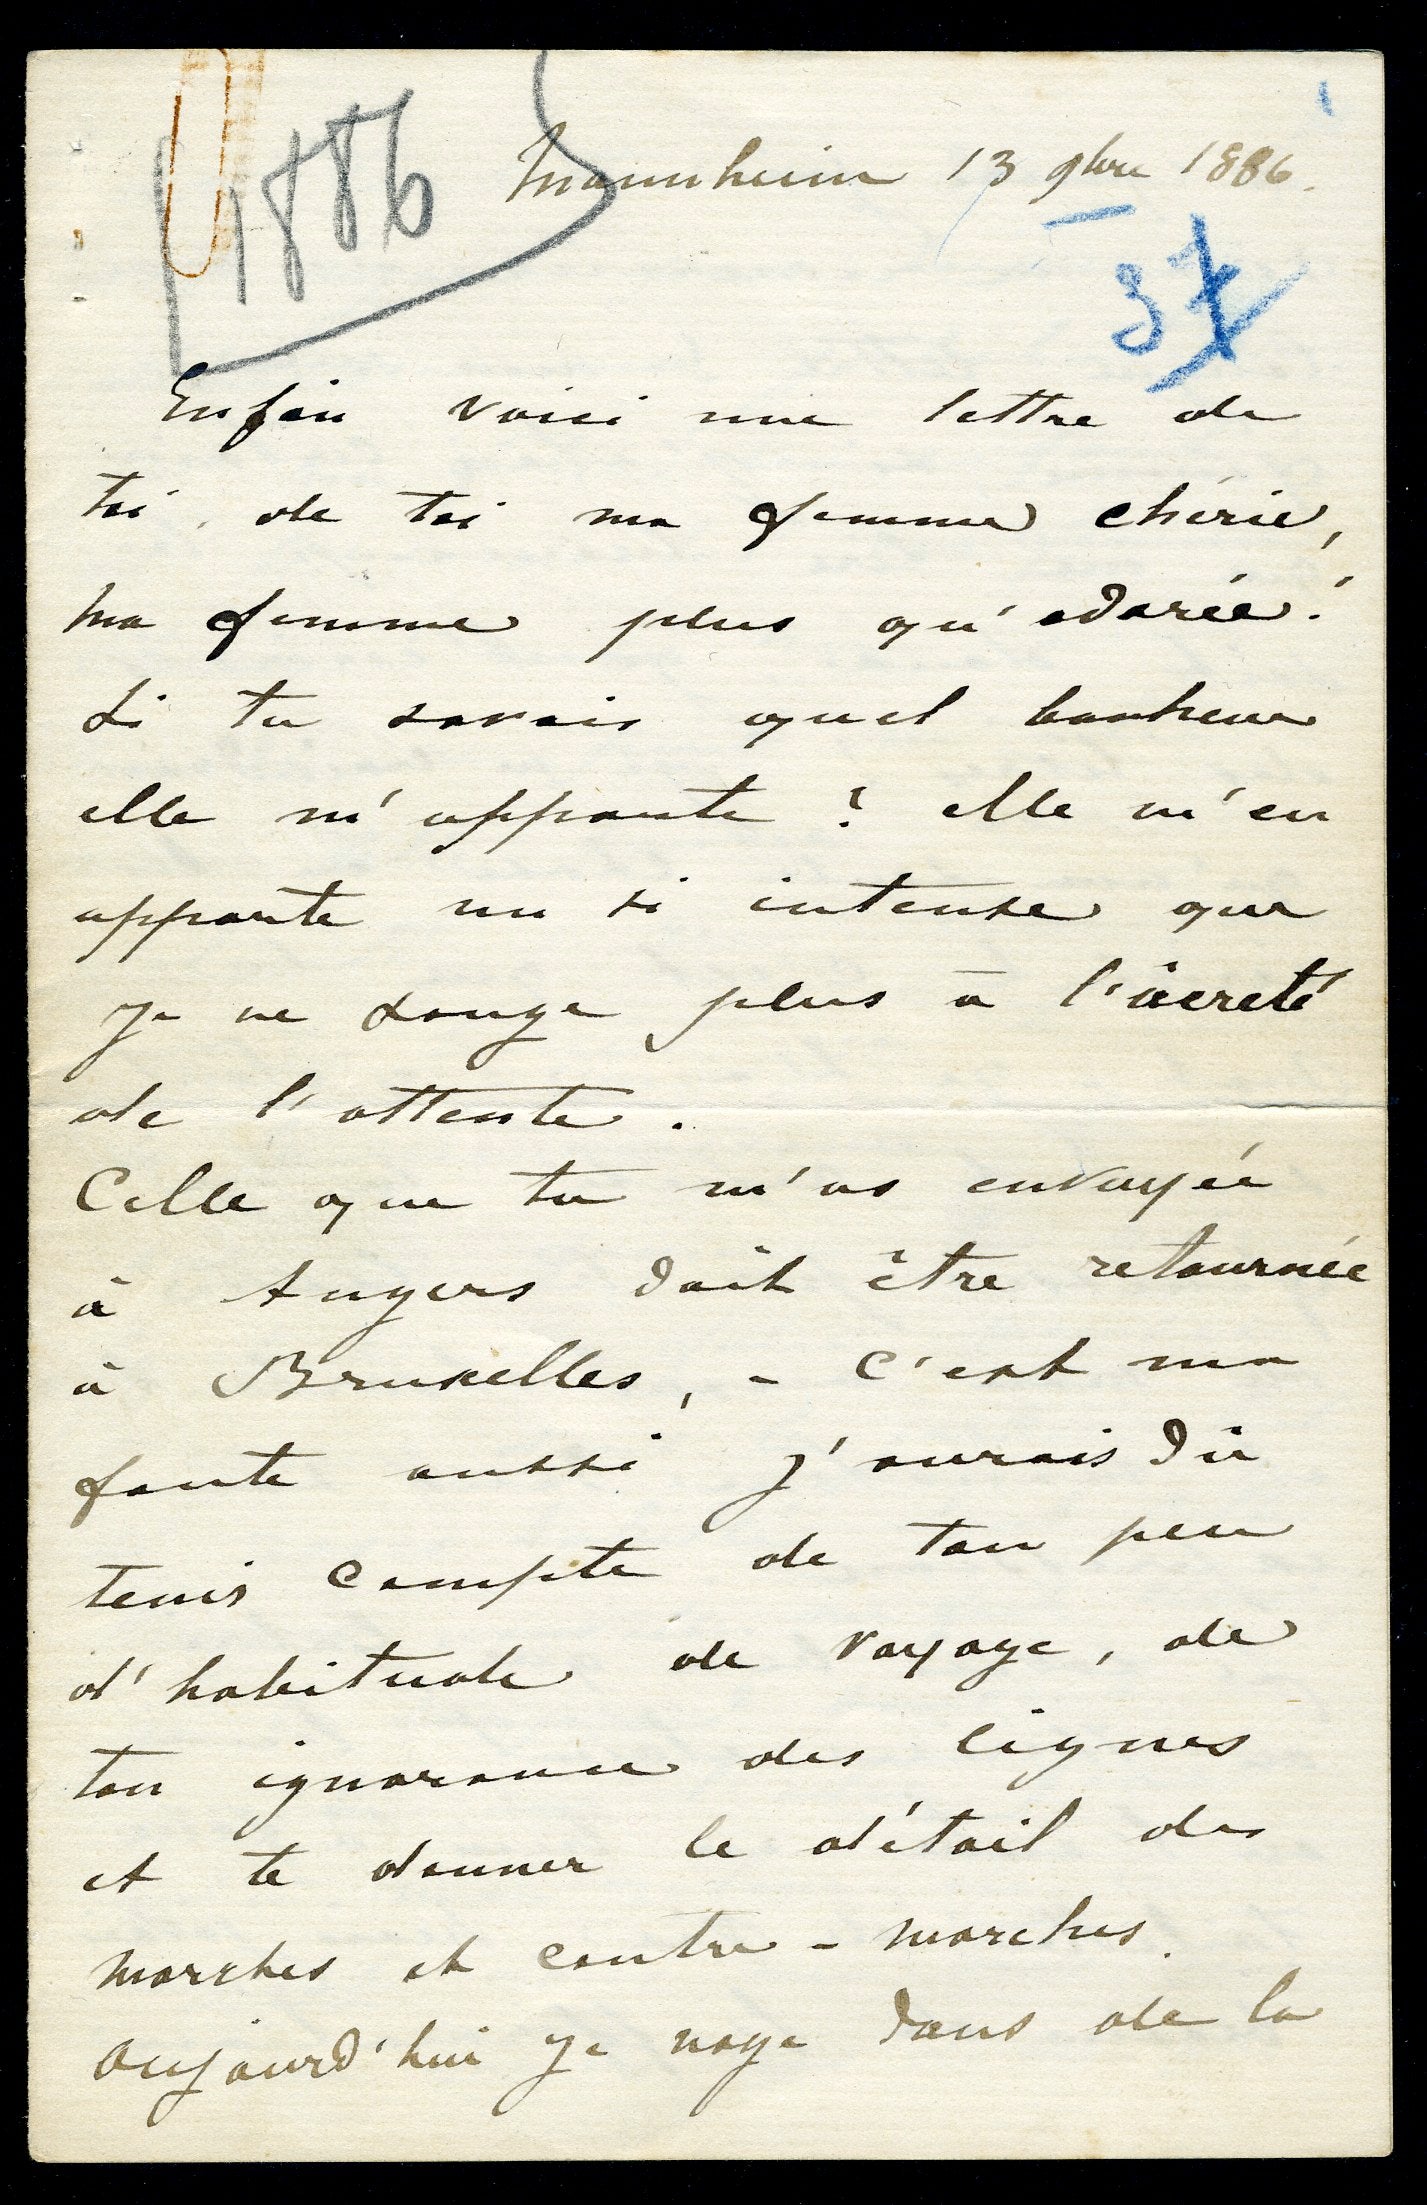 1
1886
Mannheim 13 9bre 1886.
37
Enfin voici une lettre de
toi, de toi ma femme chérie,
ma femme plus qu'adorée!
Si tu savais quel bonheur
elle m'apporte? elle m'en
apporte un si intense que
je ne songe plus à l'âcreté
de l'attente.
Celle que tu m'as envoyée
à Angers doit être retournée
à Bruxelles, - c'est ma
faute aussi j'aurais dû
tenir compte de ton peu
d'habitude de voyage, de
ton ignorance des lignes
et te donner le détail des
marches et contre-marches.
Aujourd'hui je nage dans de la